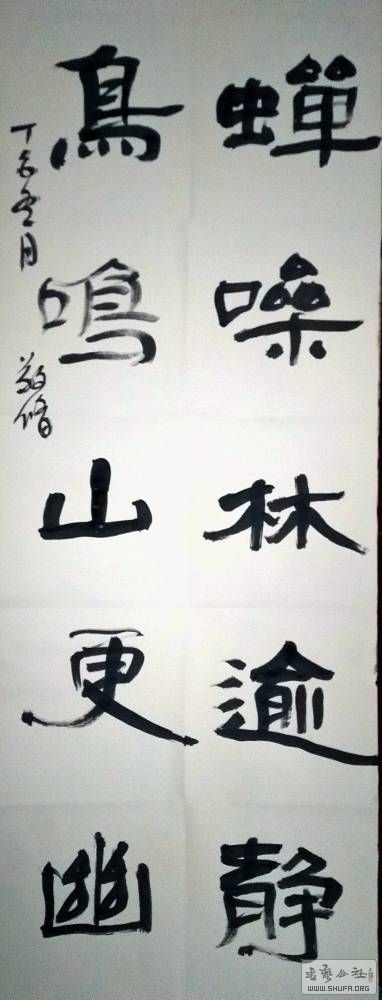 蟬噪林逾静
鳥鳴山更幽
书艺公社
WWW.SHUFA.ORG